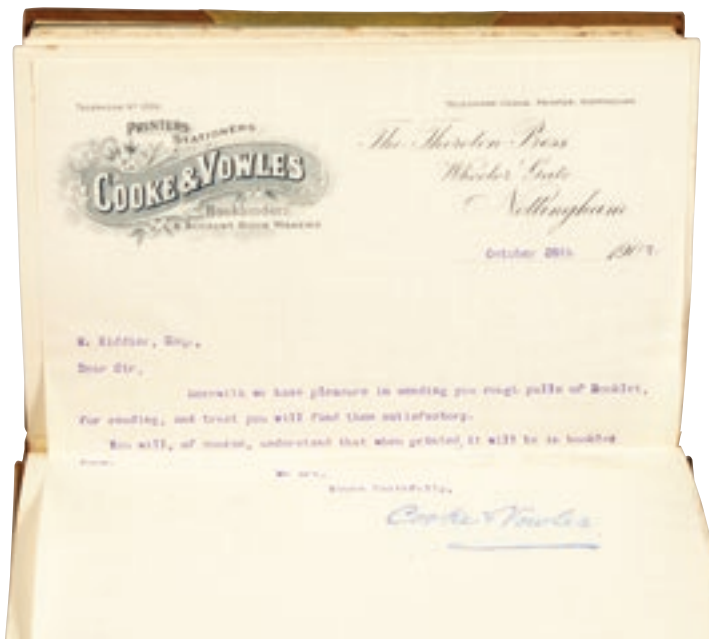 PRINTERS
STATIONERS
COOKE & VOWLES
Bookbinders
& ACCOUNT BOOK MAKERS
The Thoroton Press
Wheeler Gate
Nottingham
October 190
Esq.,
Dear Sir,
Herewith we have pleasure in sending you rough pulls of Booklet,
for reading, and trust you will find them satisfactory.
You will, of course, understand that when printed it will be in booklet
form.
We are,
Yours faithfully,
Cooke & Vowles